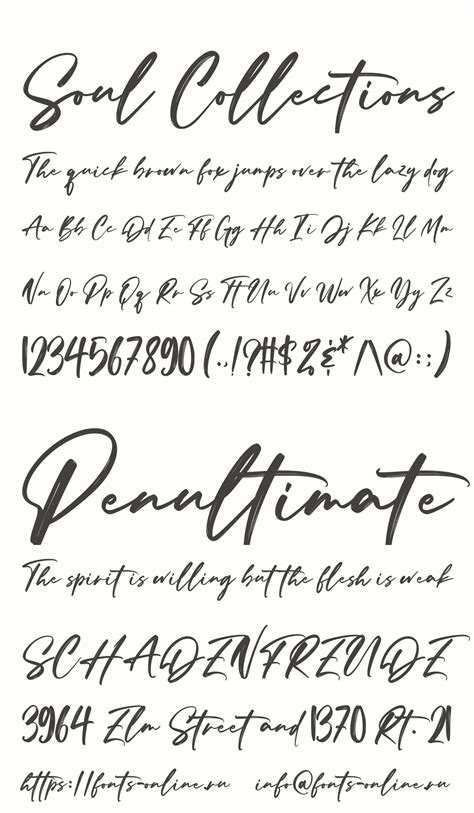 Soul Collections
The quick brown fox jumps over the lazy dog
Aa Bb Cc Dd Ee Ff Gg Hh Ii Jj Kk Ll Mm
Nn Oo Pp Qq Rr Ss Tt Uu Vv Ww Xx Yy Zz
1234567890 (.,!?#$%&*/\@:;)
Penultimate
The spirit is willing but the flesh is weak
SCHADENFREUDE
3964 Elm Street and 1370 Rt. 21
https://fonts-online.ru info@fonts-online.ru